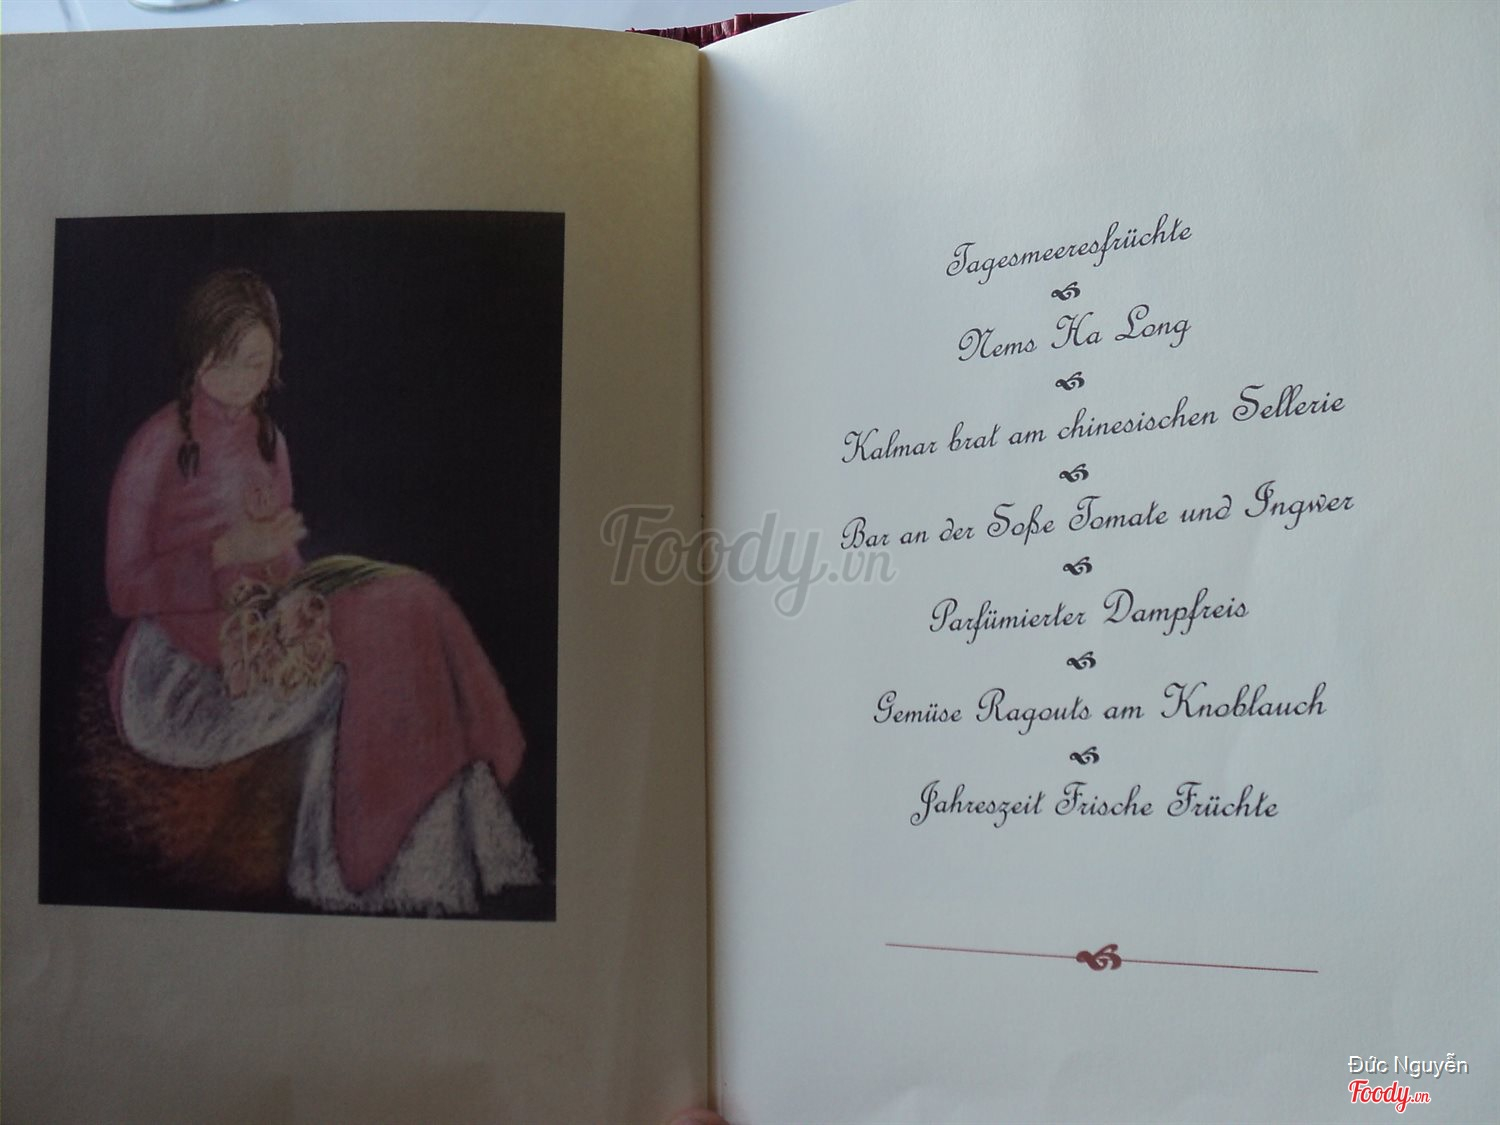 Tagesmeeresfrüchte
Nems Ha Long
Kalmar brat am chinesischen Sellerie
Bar an der Soße Tomate und Ingwer
Parfümierter Dampfreis
Gemüse Ragouts am Knoblauch
Jahreszeit Frische Früchte
Foody.vn
Đức Nguyễn
Foody.vn